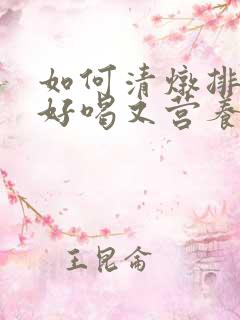 如何清燉排
好喝又营养
王昆侖